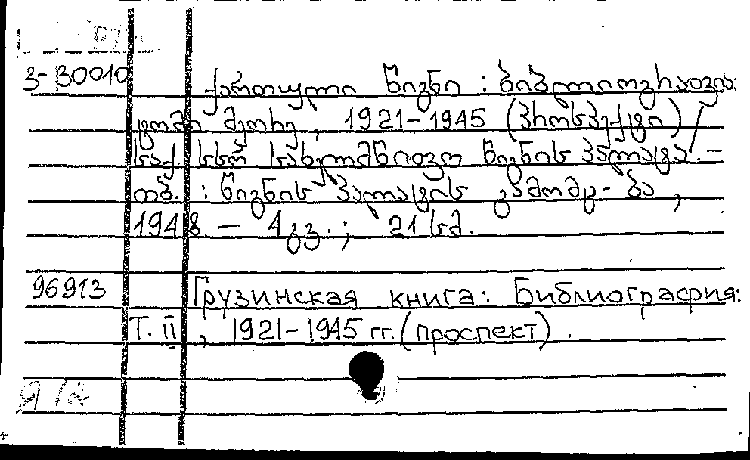 3-30010 ქართული წიგნი : ბიბლიოგრაფია:
ტომი მეორე, 1921-1945 (პროსპექტი) /
საქ. სსრ სახელმწიფო წიგნის პალატა. –
თბ. : წიგნის პალატის გამომც-ბა,
1948 – 4 გვ. ; 21 სმ.
96913 Грузинская книга: Библиография:
Т. II, 1921-1945 гг. (проспект).